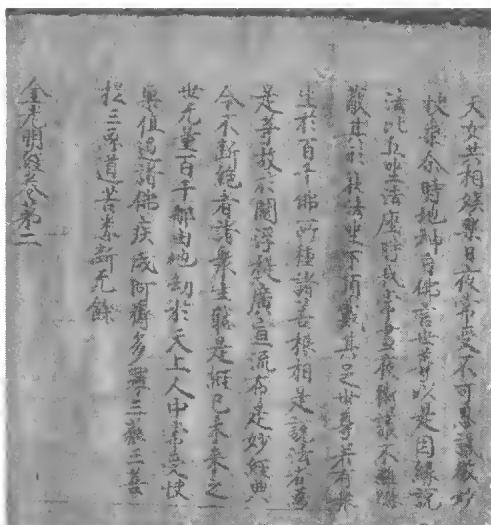 天女共相娛樂日夜常受不可思議微妙
快樂尒時地神白佛言世尊以是因緣說
法比丘坐法座時我常晝夜衛護不離隱
蔽其形於法坐下頂戴其足世尊若有眾
生於百千佛所種諸善根相是說法者為
是等故於閻浮提廣宣流布是妙經典
令不斷絕者諸眾生聽是經已未來之
世无量百千那由他劫於天上人中常受快
樂值遇諸佛疾成阿耨多羅三藐三菩
提三惡道苦悉斷无餘
金光明經卷第二